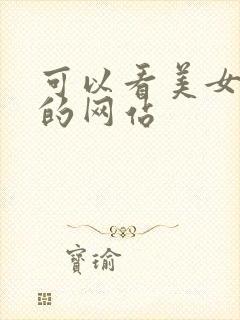 可以看美女
的网站
寳瑜